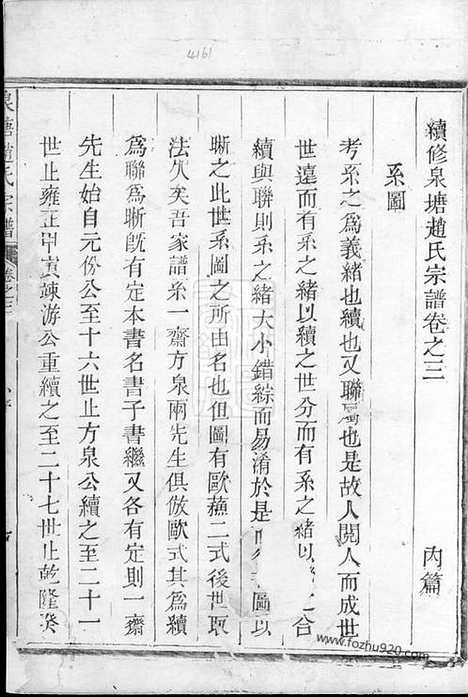 4161
續修泉塘趙氏宗譜卷之三 內篇
系圖
考系之爲義緒也續也又聯屬也是故人閱人而成世
世遠而有系之緒以續之世分而有系之緒以之合
續與聯則系之緒大小錯綜而易淆於是圖以
晰之此世系圖之所由名也但圖有歐蘇二式後世取
法久矣吾家譜系一齋方泉兩先生俱倣歐式其爲續
爲聯爲晰旣有定本書名書子書繼又各有定則一齋
先生始自元份公至十六世止方泉公續之至二十一
世止雍正甲寅竦游公重續之至二十七世止乾隆癸
泉塘趙氏宗譜 卷之三
www.fozhu920.com